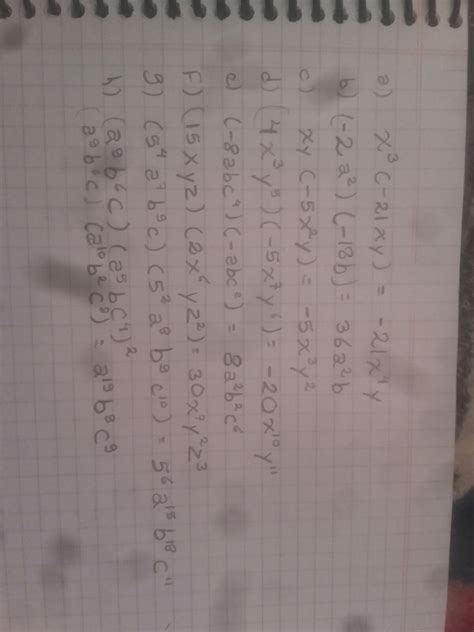 a) x³(-21xy) = -21x⁴y
b) (-2a²)(-18b) = 36a²b
c) xy(-5x²y) = -5x³y²
d) (4x³y⁵)(-5x⁷y⁶) = -20x¹⁰y¹¹
e) (-8abc⁴)(-abc²) = 8a²b²c⁶
f) (15xyz)(2x⁶yz²) = 30x⁷y²z³
g) (5⁴a⁷b⁹c)(5²a⁸b⁹c¹⁰) = 5⁶a¹⁵b¹⁸c¹¹
h) (a⁹b⁶c)(a⁵bc⁴)²
(a⁹b⁶c)(a¹⁰b²c⁸) = a¹⁹b⁸c⁹